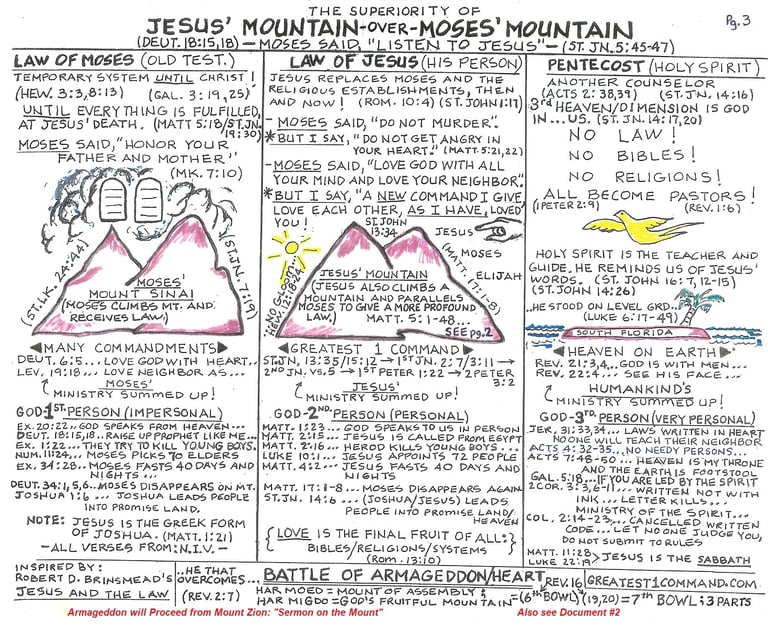 THE SUPERIORITY OF
JESUS' MOUNTAIN-OVER-MOSES' MOUNTAIN
Pg.3
(DEUT. 18:15,18) — MOSES SAID, "LISTEN TO JESUS" — (ST. JN. 5:45-47)
LAW OF MOSES (OLD TEST.)
TEMPORARY SYSTEM UNTIL CHRIST!
(HEW. 3:3,8:13) (GAL. 3:19,25)
UNTIL EVERYTHING IS FULFILLED,
AT JESUS' DEATH. (MATT 5:18/ST.JN.
19:30)
MOSES SAID, "HONOR YOUR
FATHER AND MOTHER"
(MK. 7:10)
(ST. LK. 24:44)
(ST. JN. 7:19)
MOSES'
MOUNT SINAI
(MOSES CLIMBS MT. AND
RECEIVES LAW)
MANY COMMANDMENTS
DEUT. 6:5... LOVE GOD WITH HEART...
LEV. 19:18... LOVE NEIGHBOR AS...
MOSES'
MINISTRY SUMMED UP!
GOD-1ST-PERSON (IMPERSONAL)
EX. 20:22... GOD SPEAKS FROM HEAVEN...
DEUT. 18:15,18.. RAISE UP PROPHET LIKE ME...
EX. 1:22... THEY TRY TO KILL YOUNG BOYS.
NUM. 11:24... MOSES PICKS 70 ELDERS
EX. 34:28... MOSES FASTS 40 DAYS AND
NIGHTS...
DEUT. 34:1,5,6.. MOSES DISAPPEARS ON MT.
JOSHUA 1:6 ... JOSHUA LEADS PEOPLE
INTO PROMISE LAND.
NOTE: JESUS IS THE GREEK FORM
OF JOSHUA. (MATT. 1:21)
—ALL VERSES FROM: N.I.V.—
LAW OF JESUS (HIS PERSON)
JESUS REPLACES MOSES AND THE
RELIGIOUS ESTABLISHMENTS, THEN
AND NOW! (ROM. 10:4) (ST. JOHN 1:17)
- MOSES SAID, "DO NOT MURDER".
* BUT I SAY, "DO NOT GET ANGRY IN
YOUR HEART." (MATT. 5:21,22)
- MOSES SAID, "LOVE GOD WITH ALL
YOUR MIND AND LOVE YOUR NEIGHBOR".
* BUT I SAY, "A NEW COMMAND I GIVE
LOVE EACH OTHER, AS I HAVE, LOVED
YOU! ST. JOHN
13:34
JESUS
MOSES
ELIJAH
(MATT. 17:1-8)
NO GLOOM...
HEW. 12:18-24
JESUS' MOUNTAIN
(JESUS ALSO CLIMBS A
MOUNTAIN AND PARALLELS
MOSES TO GIVE A MORE PROFOUND
LAW) MATT. 5:1-48...
SEE pg.2
GREATEST 1 COMMAND
ST. JN. 13:35/15:12 → 1ST JN. 2:7/3:11 →
2ND JN. VS. 5 → 1ST PETER 1:22 → 2 PETER
3:2
JESUS'
MINISTRY SUMMED UP!
GOD-2ND-PERSON (PERSONAL)
MATT. 1:23... GOD SPEAKS TO US IN PERSON
MATT. 2:15... JESUS IS CALLED FROM EGYPT
MATT. 2:16... HEROD KILLS YOUNG BOYS...
LUKE 10:1... JESUS APPOINTS 72 PEOPLE
MATT. 4:2... JESUS FASTS 40 DAYS AND
NIGHTS
MATT. 17:1-8... MOSES DISAPPEARS AGAIN
ST. JN. 14:6... (JOSHUA/JESUS) LEADS
PEOPLE INTO PROMISE LAND/
HEAVEN
{LOVE IS THE FINAL FRUIT OF ALL:}
BIBLES/RELIGIONS/SYSTEMS
(Rom. 13:10)
PENTECOST (HOLY SPIRIT)
ANOTHER COUNSELOR
(ACTS 2:38,39) (ST. JN. 14:16)
3rd HEAVEN/DIMENSION IS GOD
IN...US. (ST. JN. 14:17,20)
NO LAW!
NO BIBLES!
NO RELIGIONS!
ALL BECOME PASTORS!
(1 PETER 2:9) (REV. 1:6)
HOLY SPIRIT IS THE TEACHER AND
GUIDE. HE REMINDS US OF JESUS'
WORDS. (ST. JOHN 16:7,12-15)
(ST. JOHN 14:26)
..HE STOOD ON LEVEL GRD...
(LUKE 6:17-49)
SOUTH FLORIDA
HEAVEN ON EARTH
REV. 21:3,4... GOD IS WITH MEN...
REV. 22:4... SEE HIS FACE...
HUMANKIND'S
MINISTRY SUMMED UP!
GOD-3RD-PERSON (VERY PERSONAL)
JER. 31:33,34... LAWS WRITTEN IN HEART
NO ONE WILL TEACH THEIR NEIGHBOR
ACTS 4:32-35... NO NEEDY PERSONS...
ACTS 7:48-50... HEAVEN IS MY THRONE
AND THE EARTH IS FOOTSTOOL
GAL. 5:18... IF YOU ARE LED BY THE SPIRIT
2 COR. 3:3,6-11... WRITTEN NOT WITH
INK... LETTER KILLS...
MINISTRY OF THE SPIRIT...
COL. 2:14-23... CANCELLED WRITTEN
CODE... LET NO ONE JUDGE YOU,
DO NOT SUBMIT TO RULES
MATT. 11:28
LUKE 22:19 > JESUS IS THE SABBATH
INSPIRED BY:
ROBERT D. BRINSMEAD'S
JESUS AND THE LAW
..HE THAT
OVERCOMES...
(REV. 2:7)
BATTLE OF ARMAGEDDON/HEART
HAR MOED = MOUNT OF ASSEMBLY;
HAR MIGDO = GOD'S FRUITFUL MOUNTAIN
REV. 16
=(6th BOWL)
GREATEST1COMMAND.COM
(19,20) = 7TH BOWL; 3 PARTS
Armageddon will Proceed from Mount Zion: "Sermon on the Mount"
Also see Document #2